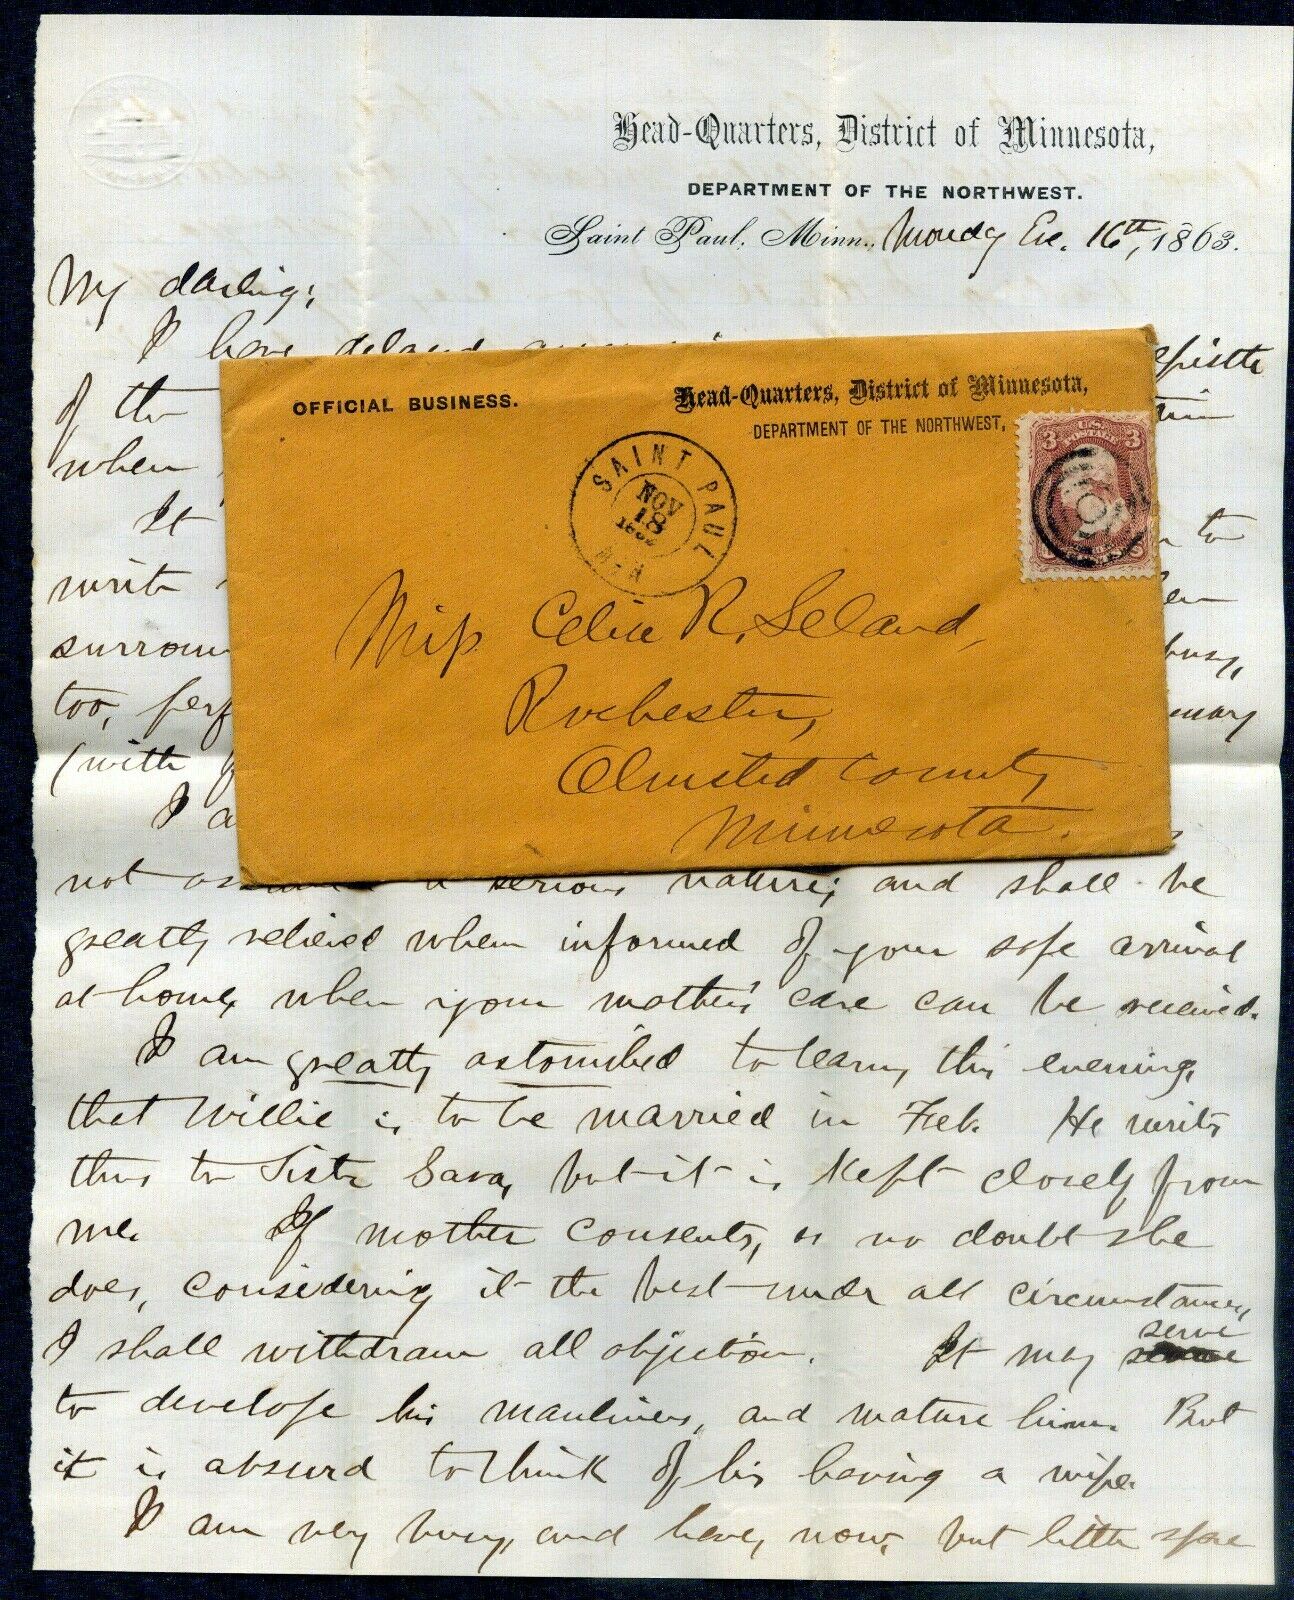 Head-Quarters, District of Minnesota,
DEPARTMENT OF THE NORTHWEST.
Saint Paul, Minn., Monday Eve. 16th, 1863.
My darling;
I have delayed
epistle
of the
when
It
to
write
surroun
busy,
too, perf
many
(with
I a
OFFICIAL BUSINESS.
Head-Quarters, District of Minnesota,
DEPARTMENT OF THE NORTHWEST,
SAINT PAUL
NOV
18
MIN
U.S. POSTAGE
3 3
Miss Celia R. Leland,
Rochester,
Olmsted County
Minnesota.
not a serious nature; and shall be
greatly relieved when informed of your safe arrival
at home, when your mother's care can be received.
I am greatly astonished to learn, this evening,
that Willie is to be married in Feb. He writes
thus to Sister Sara, but it is kept closely from
me. If mother consents, as no doubt she
does, considering it the best under all circumstances,
I shall withdraw all objection. It may serve
to develope his manliness, and mature him. But
it is absurd to think of his having a wife.
I am very busy, and have, now, but little spare